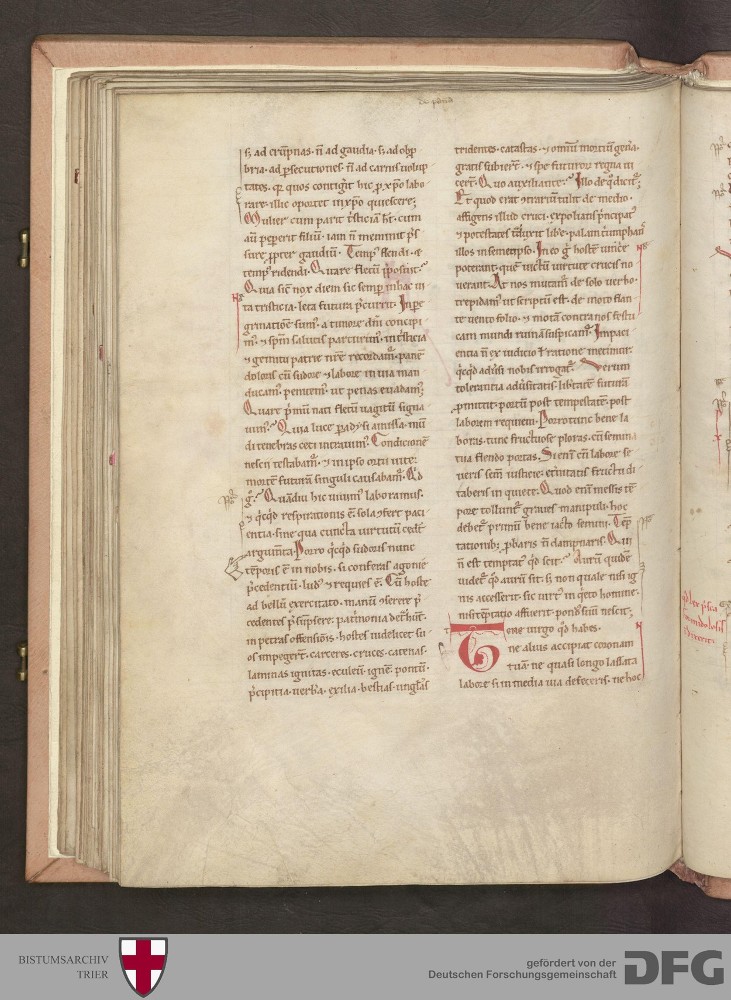 s; ad erūpnas. n̄ ad gaudia. s; ad obp̱
bria. ad p̱secutiones. n̄ ad carnis uolup
tates. q̨ quos contigit hic p̱ xp̄o labo
rare. illic oportet in xp̄o quiescere;
Mulier cum parit tristiciā h̄t. cum
aū pep̱erit filiū. iam n̄ meminit p̄s
sure p̱pter gaudiū. Temp⁹ flendi. ⁊
temp⁹ ridendi. Quare fletū p̄posuit?
Quia sic nox diem sic semp̱ in hac ui
ta tristicia. leta futura p̄currit. In p̱e
grinatiōe sum⁹. a timore dn̄i concipi
m⁹. ⁊ sp̄m salutis parturim⁹. in tristicia
⁊ gemitu patrie nr̄e recordam̄. panē
doloris cū sudore ⁊ labore in uia man
ducam⁹.
Quare p̄mū nati fletū uagitū signa
uim⁹? Quia luce p̱adysi amissa. mū
di tenebras ceci intrauim⁹. Condicionē
nesciī testabam̄. ⁊ in ipso ortu uite.
mortē futurā singuli causabam̄. Qd̄
g̊? Quādiu hic uiuim⁹ laboramus.
⁊ q̄cqd̄ respirationis ē. sola ꝯfert paci
entia. sine qua cuncta uirtutū cedē
arguuīta. Porro q̄cqd̄ sudoris nunc
tēporis ē in nobis. si conferas agonie
p̄cedentiū. lud⁹ ⁊ requies ē. Cū hoste
ad bellū exercitato. manū ꝯserere p̄
cedentes p̄sūpsere.
in petras offensiōis. hostes uidelicet su
os impegert̄. carceres. cruces. catenas.
laminas ignitas. eculeū. ignē. pontū.
p̄cipitia. uerb̄a. exilia. bestias. ungl̄as
tridentes. catastas. ⁊ omnīū mortiū gen̄a.
gratis subiert̄. ⁊ spe futuroꝝ regna ui
cert̄. Quo auxiliante? Illo de q̊ dicit̄;
Et quod erat ꝯtrariū tulit de medio.
affigens illud cruci. expolians p̄ncipat⁹
⁊ potestates t̄duxit lib̄e. palam t̄umphans
illos in semetipso. In eo g̊ hostē uincē
poterant. quē uictū uirtute crucis no
uerant. At nos mutam̄ de solo uerbo.
trepidam⁹ ut scriptū est. de moto flan
te uento folio. ⁊ mota contra nos festu
cam mundi ruinā suspicam̄. Impaci
entia n̄ ex iudicio ł ratione metimur.
q̄cqd̄ adūsi nobis irrogat̄. Verum
tolerantia aduersitatis. libertatē futurā
p̱mittit. portū post tempestatē. post
laborem requiem. Porro tunc bene la
boras. tunc fructuose ploras. cū semina
tua flendo portas. Si enī cū labore se
ueris semī iusticie. etnitatis fructū di
taberis in quiete. Quod enī messis tē
pore tollunt̄ graues manipuli. hoc
debet̄ primū bene iacto semini. Tēp̱
tationib; p̱baris n̄ dampnaris. Qui
n̄ est temptat⁹ qd̄ scit? Aurū quidē
uidet̄ qd̄ aurū sit. s; non quale nisi ig
nis accesserit. sic uirt⁹ in q̄eto homine.
nisi tēptatio affuerit. pond⁹ suū nescit;
Tene uirgo qd̄ habes.
ne alius accipiat coronam
tuā. ne quasi longo lassata
labore si in media uia defeceris. ne hoc
BISTUMSARCHIV
TRIER
gefördert von der
Deutschen Forschungsgemeinschaft
DFG